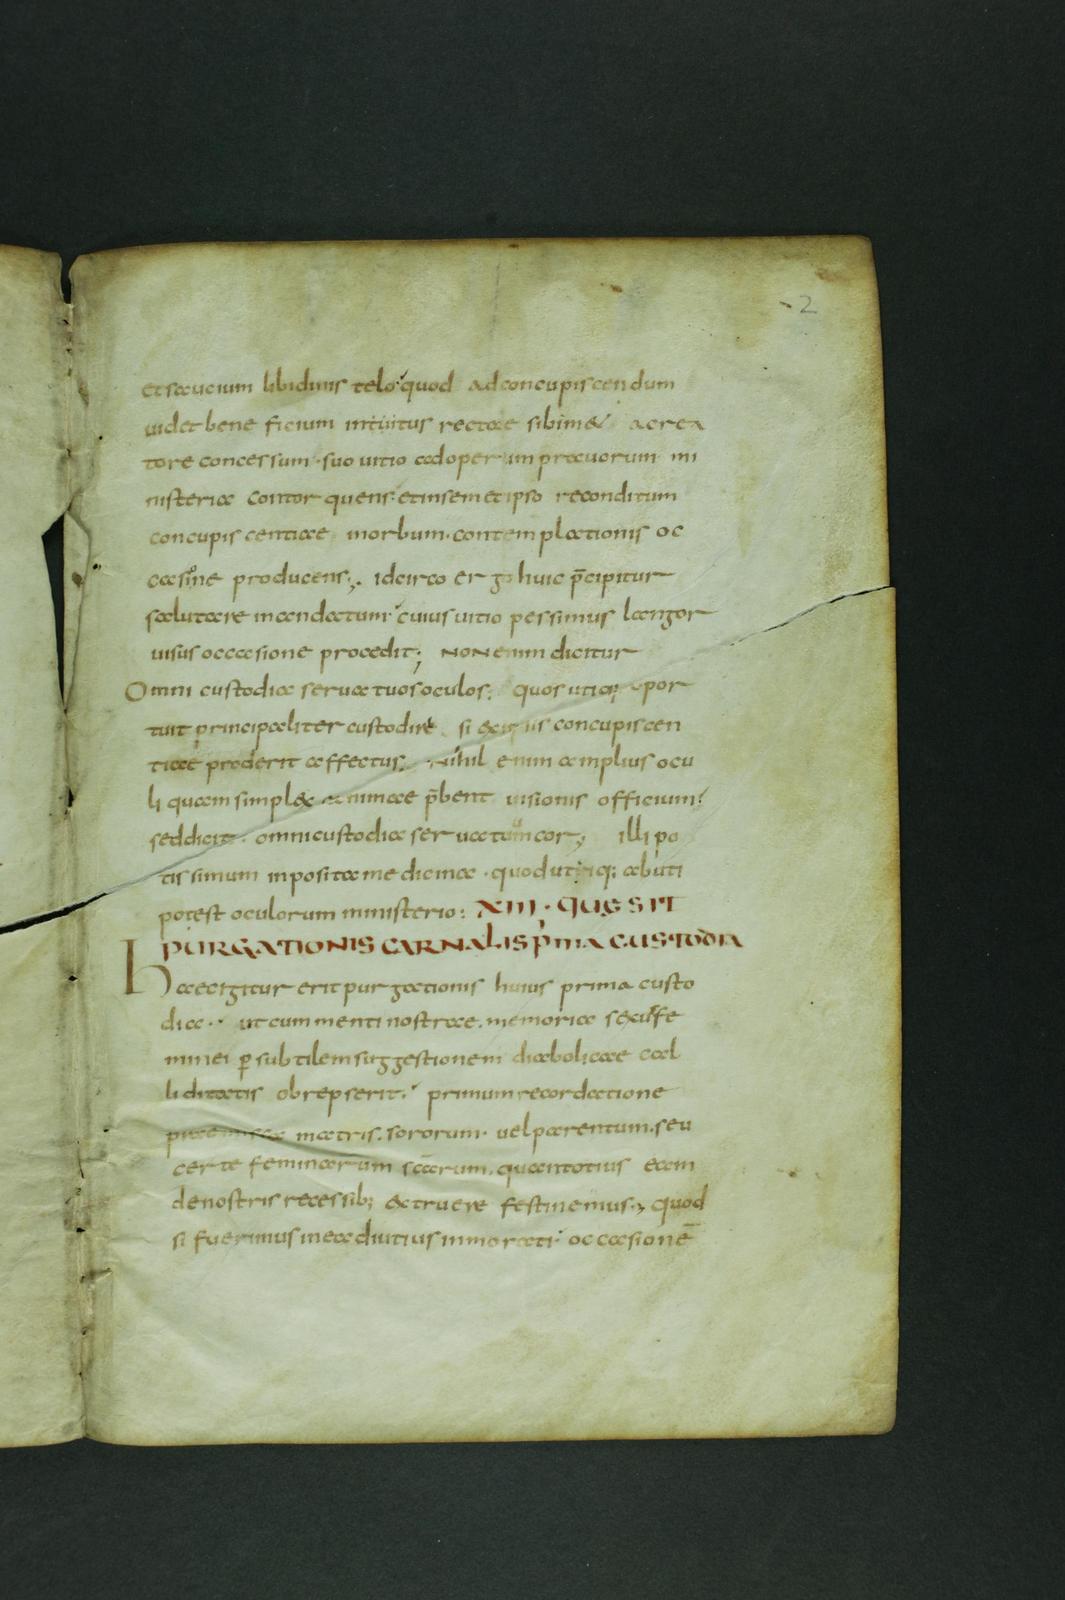 2
et saucium libidinis telo· quod ad concupiscendum
videt bene ficium intuitus recte sibimet a crea
tore concessum· suo vitio ad operum pravorum mi
nisteria contorquens· et insemet ipso reconditum
concupiscentiae morbum· contemplationis oc
casione producens;. idcirco ergo huic p̄cipitur
salutare mandatum· cuius vitio pessimus langor
visus occasione procedit; NoN enim dicitur
Omni custodia serva tuos oculos; quos utiq; opor
tuit principaliter custodire si ex eis concupiscen
tiae proderit affectus. Nihil enim amplius ocu
li quam simplex animae p̄bent visionis officium·
sed dicit· omni custodia serva tuum cor; illi po
tissimum inposita medicina· quod ubiq; abuti
potest oculorum ministerio: XIII· QUE SIT
PURGATIONIS CARNALIS pͥMA CUSTODIA
haec igitur erit purgationis huius prima custo
dia·· ut cum menti nostrae memoria sexus fe
minei ꝑ subtilem suggestionem diabolicae cal
liditatis obrepserit· primum recordatione
praemissa matris. sororum· vel parentum. seu
certe feminarum sc̄arum. quantotius eam
de nostris recessib; extruere festinemus·, quod
si fuerimus in ea diutius inmorati· occasionē